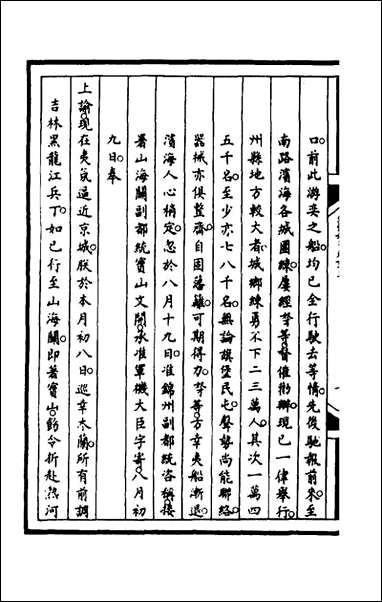 口前此游奕之船均已全行駛去等情先後馳報前來至
南路濱海各城團練屢經奴才等督催衙辦現已一律舉行
州縣地方較大者城鄉練勇不下二三萬人其次一萬四
五千名至少亦七八千名無論旗堡民屯聲勢尚能聯絡
器械亦俱整齊自固藩籬可期得力奴才等方幸夷船漸退
濱海人心稍定忽於八月十九日准錦州副都統咨稱接
署山海關副都統寶山文開承准軍機大臣字寄八月初
九日奉
上諭現在夷氛逼近京城朕於本月初八日巡幸木蘭所有前調
吉林黑龍江兵丁如已行至山海關即著寶山飭令折赴熱河